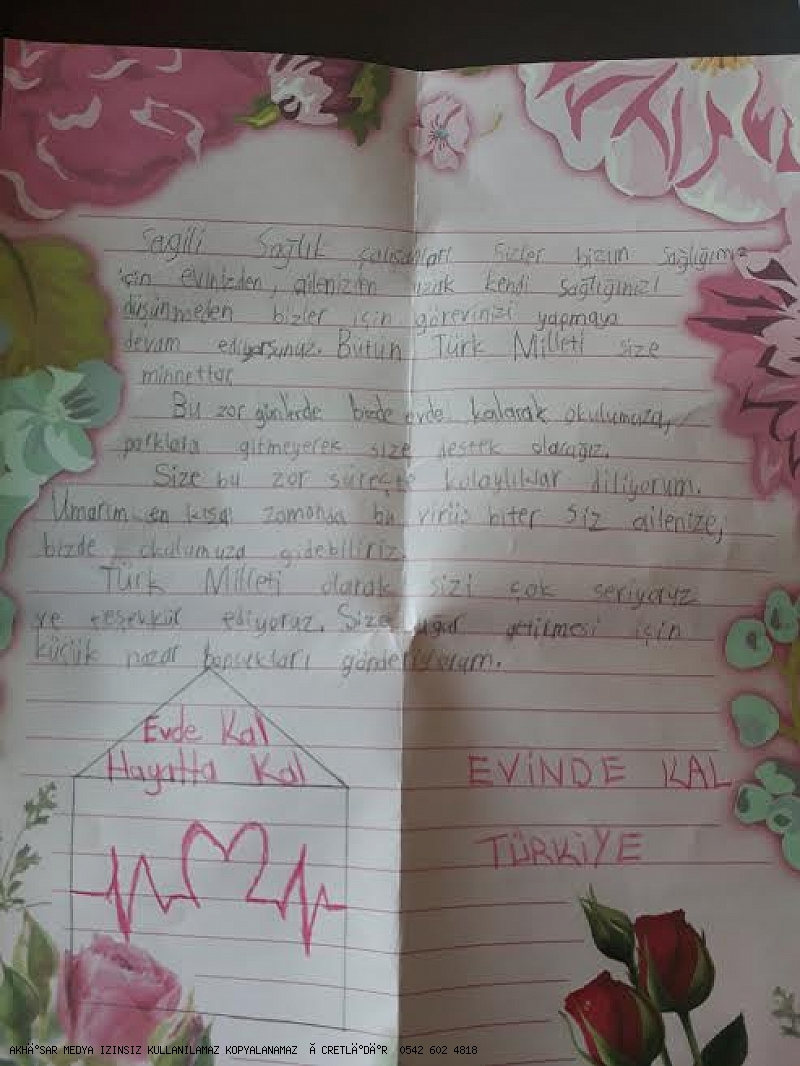 Sevgili Sağlık çalışanları sizler bizim sağlığımız
için evinizden, ailenizden uzak kendi sağlığınızı
düşünmeden bizler için görevinizi yapmaya
devam ediyorsunuz. Bütün Türk Milleti size
minnettar
Bu zor günlerde bizde evde kalarak okulumuza,
parklara gitmeyerek size destek olacağız.
Size bu zor süreçte kolaylıklar diliyorum.
Umarım en kısa zamanda bu virüs biter siz ailenize,
bizde okulumuza gidebiliriz.
Türk Milleti olarak sizi çok seviyoruz
ve teşekkür ediyoruz. Size uğur getirmesi için
küçük nazar boncukları gönderiyorum.
Evde Kal
Hayatta Kal
EVİNDE KAL
TÜRKİYE
AKHİSAR MEDYA IZINSIZ KULLANILAMAZ KOPYALANAMAZ 0542 602 4818